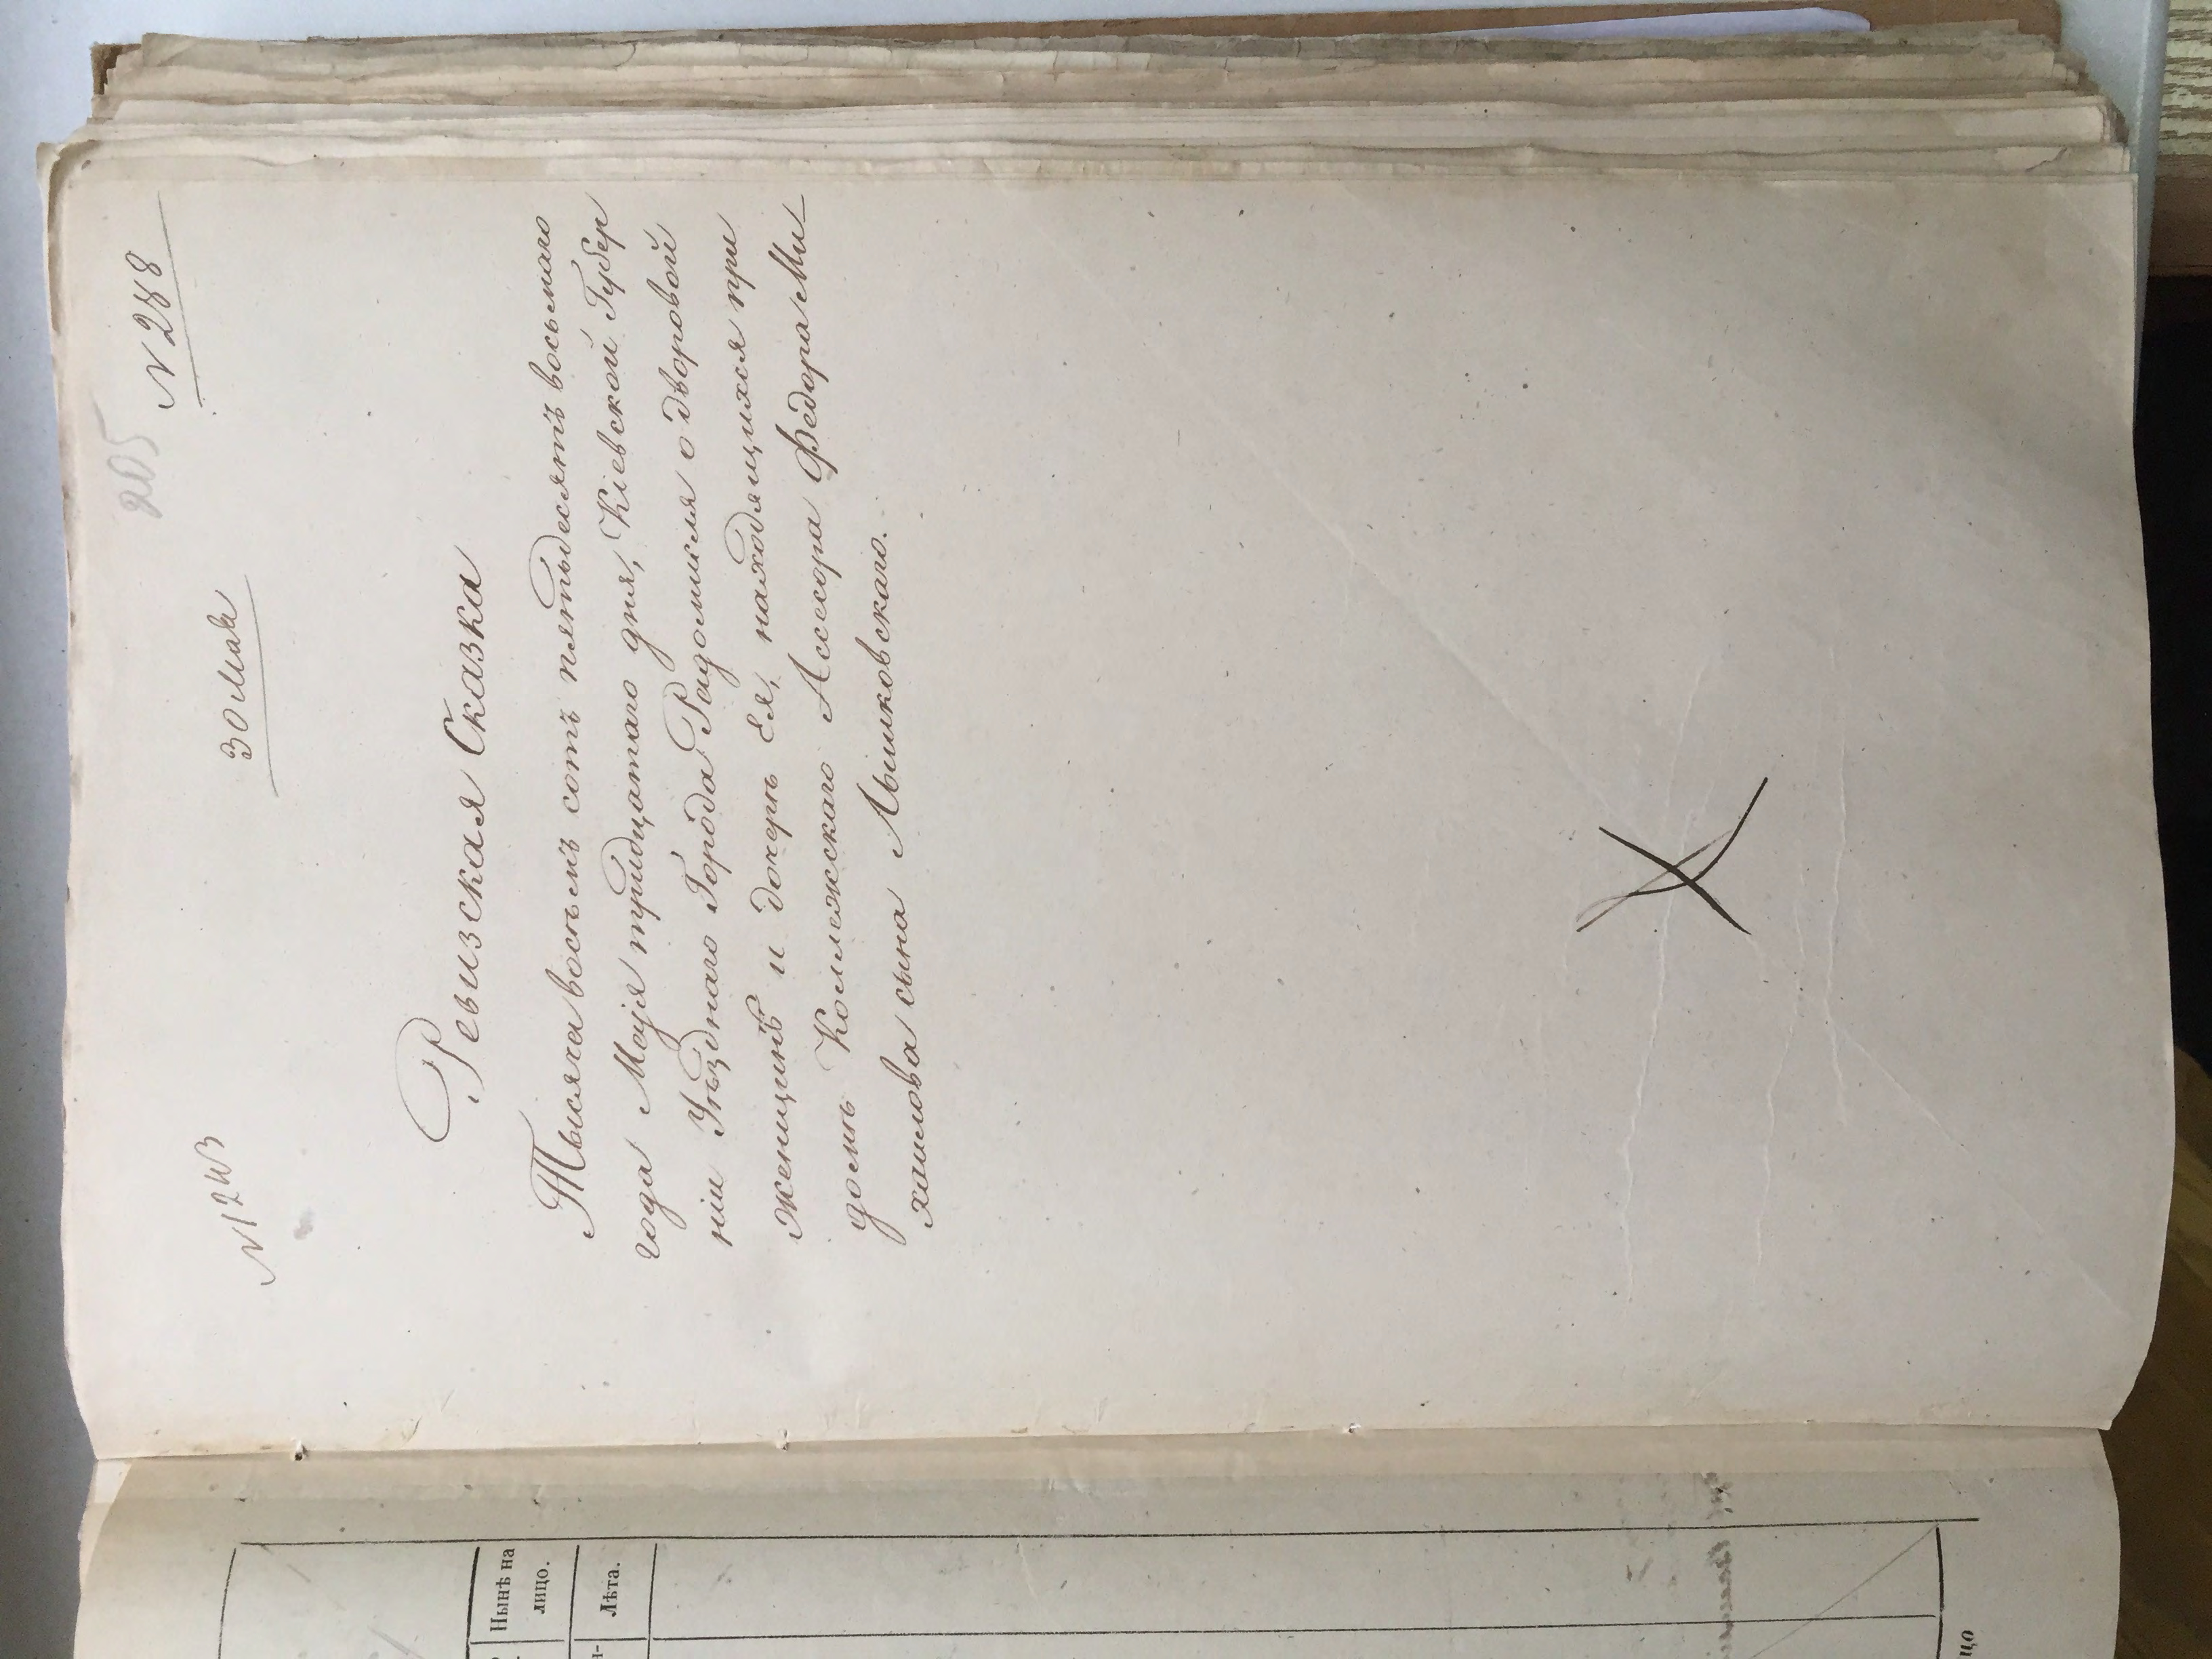 205
N 288
30 Мая
N 1243
Ревизская Сказка
Тысяча восемь сотъ пятьдесятъ восьмаго
года Маія тридцатаго дня, Кіевской Губер
ніи Уѣзднаго Города Радомысля о дворовой
женщинѣ и дочерѣ Ея, находящихся при
домѣ Коллежскаго Ассесора Федора Ми-
хаилова сына
Нынѣ на
лицо.
Лѣта.